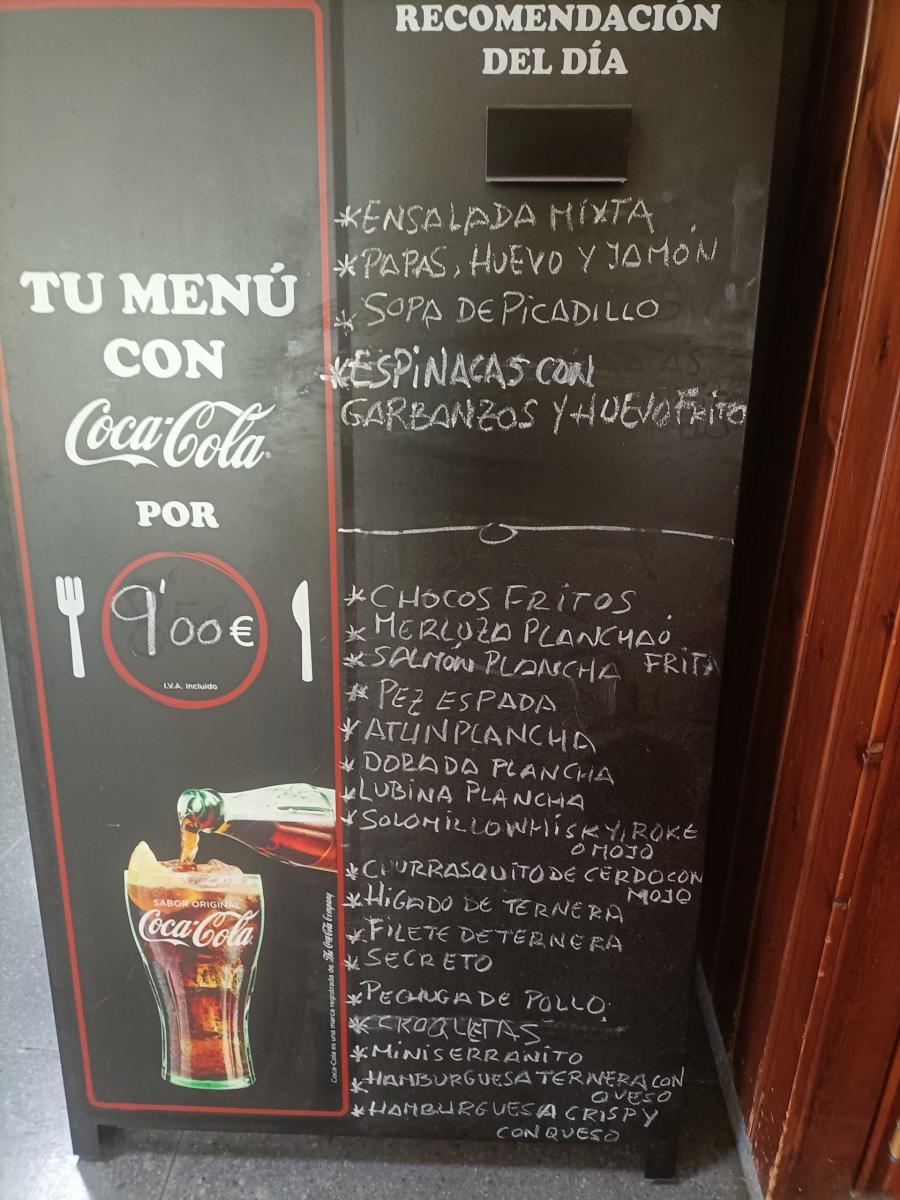 RECOMENDACIÓN
DEL DÍA
*ENSALADA MIXTA
*PAPAS, HUEVO Y JAMÓN
*SOPA DE PICADILLO
*ESPINACAS CON
GARBANZOS Y HUEVO FRITO
TU MENÚ
CON
Coca-Cola
POR
9'00€
I.V.A. incluido
SABOR ORIGINAL
Coca-Cola
Coca-Cola es una marca registrada de The Coca-Cola Company
*CHOCOS FRITOS
*MERLUZA PLANCHA Ó
FRITA
*SALMÓN PLANCHA
*PEZ ESPADA
*ATUN PLANCHA
*DORADA PLANCHA
*LUBINA PLANCHA
*SOLOMILLO WHISKY, ROKE
O MOJO
*CHURRASQUITO DE CERDO CON
MOJO
*HIGADO DE TERNERA
*FILETE DE TERNERA
*SECRETO
*PECHUGA DE POLLO
*CROQUETAS
*MINISERRANITO
*HAMBURGUESA TERNERA CON
QUESO
*HAMBURGUESA CRISPY
CON QUESO